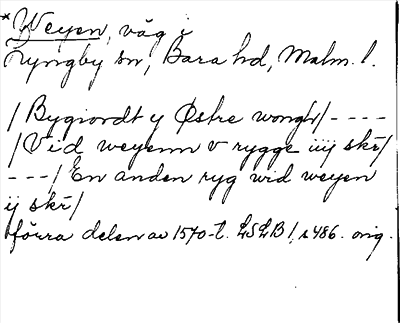 *Weyen, väg i
Lyngby sn, Bara hd, Malm. l.
/ Bygiordt y Østre wongh/ - - - -
/ Vid weyenn v rygge iiij skr/
- - - / En anden ryg wid weyen
ij skr/
förra delen av 1570-t. LSLB I, s 486. orig.